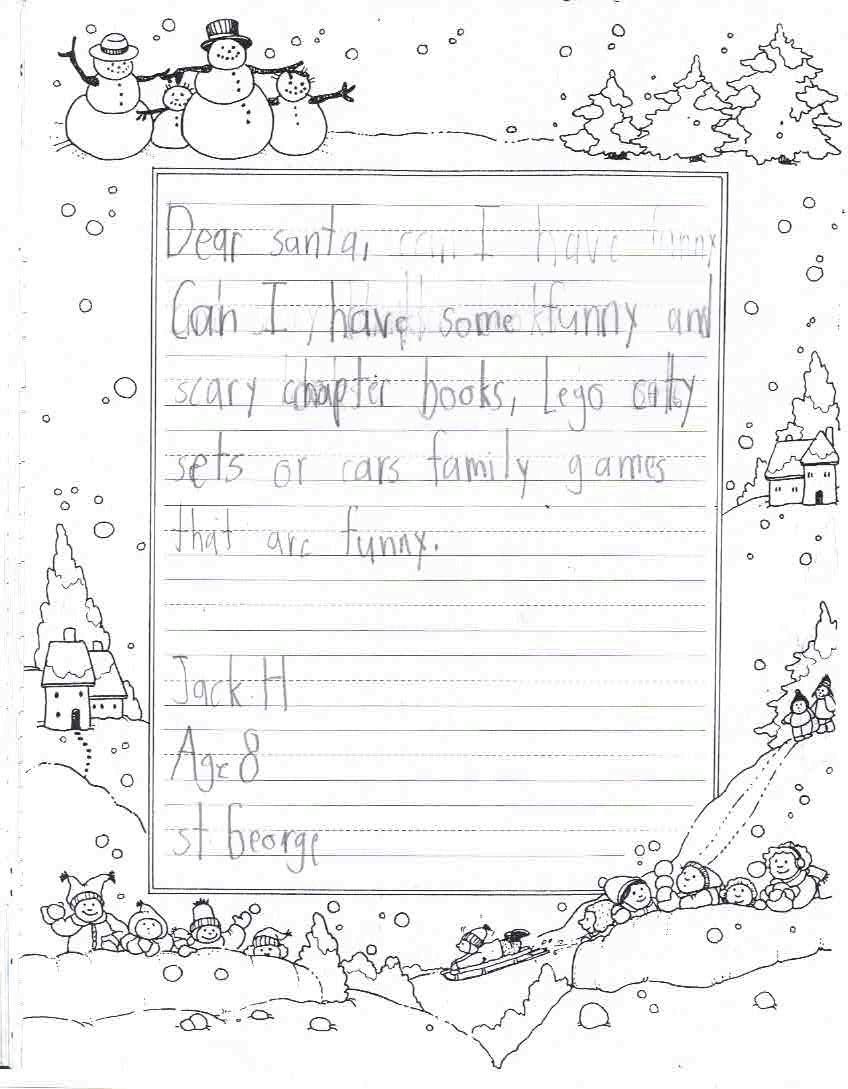 Dear santa, can I have funny
Can I have some funny and
scary chapter books, Lego city
sets or cars family games
that are funny.
Jack H
Age 8
st George